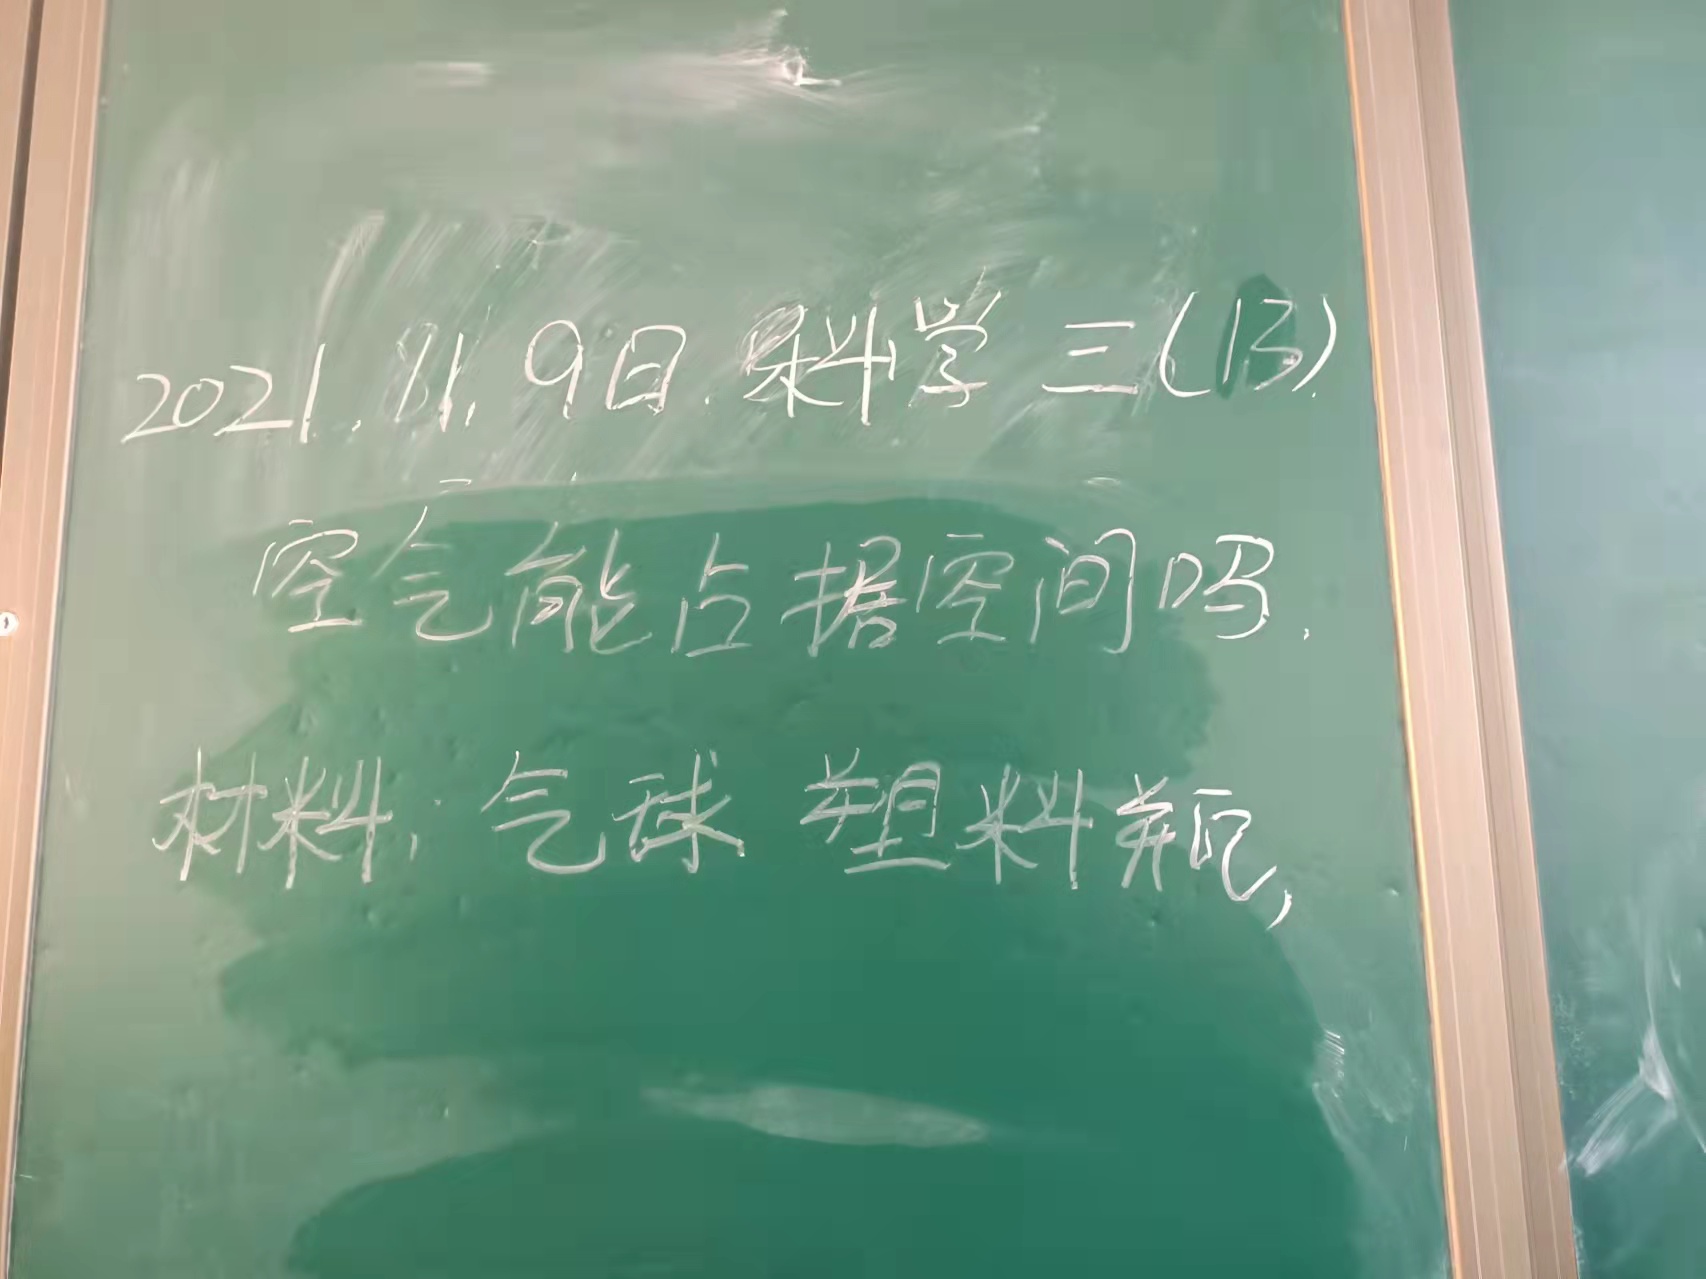 2021.11.9日.科学 三(13)
空气能占据空间吗.
材料:气球 塑料瓶,